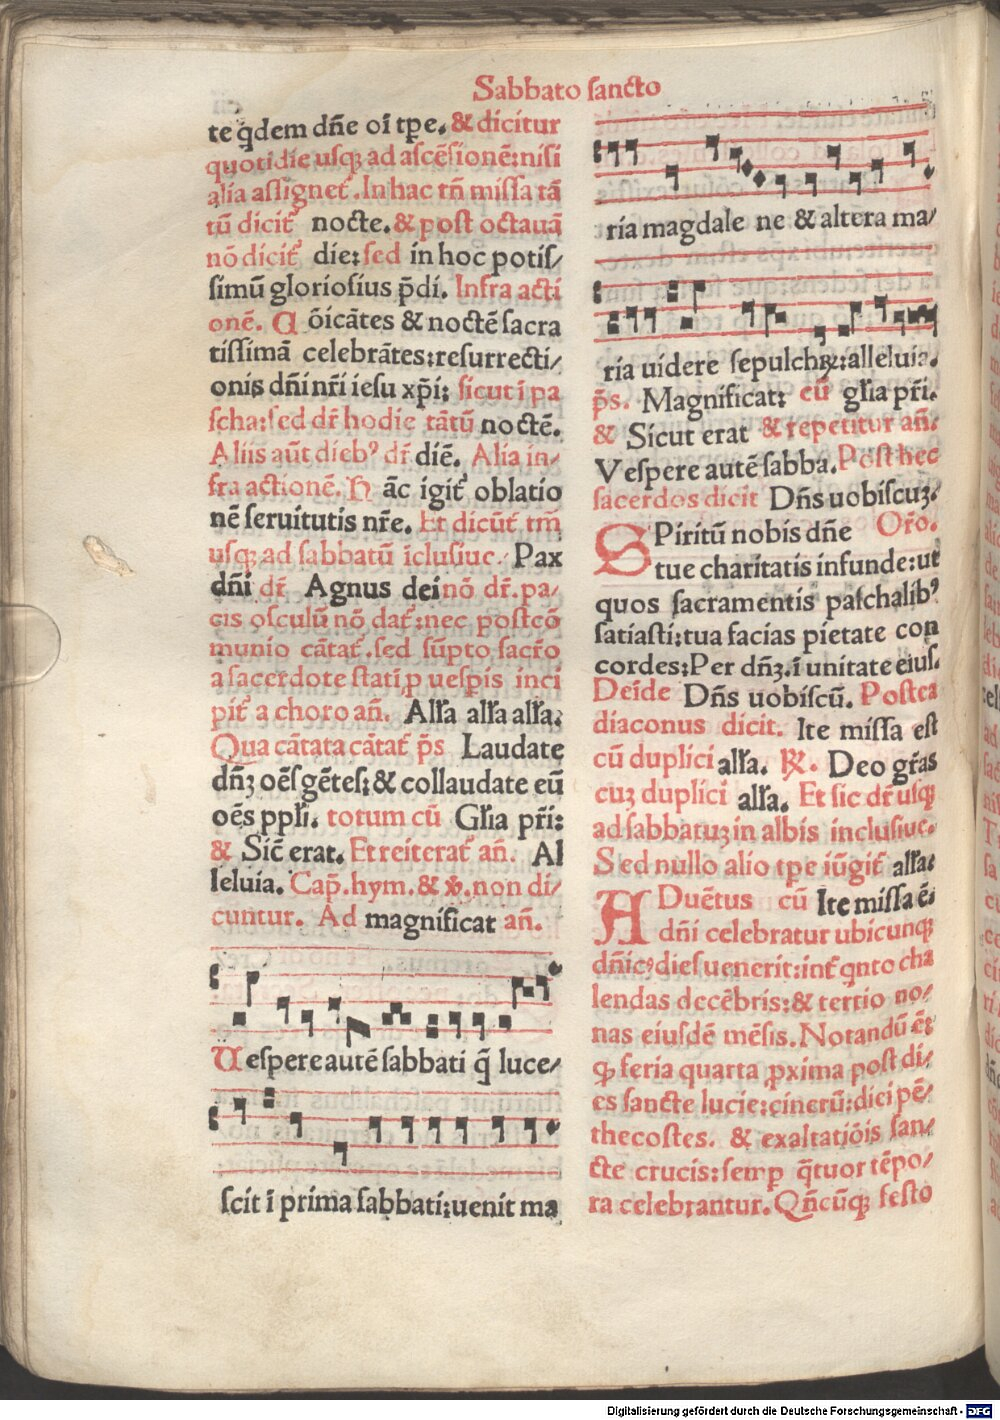 Sabbato sancto
te qdem dñe oī tp̄e. & dicitur
quotidie usq; ad ascēsionē: nisi
alia assignet᷑. In hac tñ missa tā
tū dicit᷑ nocte. & post octauā
nō dicit᷑ die: sed in hoc potis/
simū gloriosius p̄di. Infra acti
onē. C ōicātes & noctē sacra
tissimā celebrātes: resurrecti/
onis dñi nr̄i iesu xp̄i: sicut ī pa
scha: sed dr̄ hodie tātū noctē.
Aliis aūt diebꝰ dr̄ diē. Alia in/
fra actionē. H āc igit᷑ oblatio
nē seruitutis nr̄e. Et dicūt᷑ tm̄
usq; ad sabbatū īclusiue. Pax
dñi dr̄ Agnus dei nō dr̄. pa/
cis osculū nō dat᷑: nec postcō
munio cātat᷑. sed sūpto sacrō
a sacerdote statī ꝓ uesꝑis inci
pit᷑ a choro añ. Alľa alľa alľa:
Qua cātata cātat᷑ p̄s Laudate
dñʒ oēs gētes: & collaudate eū
oēs ppľi. totum cū Gľia pr̄i:
& Sic̄ erat. Et reiterat᷑ añ. Al
leluia. Cap̄. hym. & ℣. non di/
cuntur. Ad magnificat añ.
Uespere autē sabbati q̄ luce/
scit ī prima sabbati: uenit ma
ria magdale ne & altera ma/
ria uidere sepulchꝝ: alleluia.
p̄s. Magnificat: cū gľia pr̄i.
& Sicut erat & repetitur añ.
Vespere autē sabba. Post hec
sacerdos dicit Dñs uobiscuʒ.
SPiritū nobis dñe Orō.
tue charitatis infunde: ut
quos sacramentis paschalibꝰ
satiasti: tua facias pietate con
cordes: Per dñʒ. ī unitate eius.
Deīde Dñs uobiscū. Postea
diaconus dicit. Ite missa est
cū duplici alľa. ℟. Deo gr̄as
cuʒ duplici alľa. Et sic dr̄ usq;
ad sabbatuʒ in albis inclusiue.
Sed nullo alio tp̄e iūgit᷑ alľa:
ADuētus cū Ite missa ē:
dñi celebratur ubicunq;
dñicꝰ dies uenerit: int᷑ qnto cha
lendas decēbris: & tertio no/
nas eiusdē mēsis. Notandū ē:
ꝙ feria quarta ꝓxima post di/
es sancte lucie: cinerū: diei pē/
thecostes. & exaltatiōis san/
cte crucis: semꝑ q̄tuor tēpo/
ra celebrantur. Qñcūq; festo
Digitalisierung gefördert durch die Deutsche Forschungsgemeinschaft - DFG